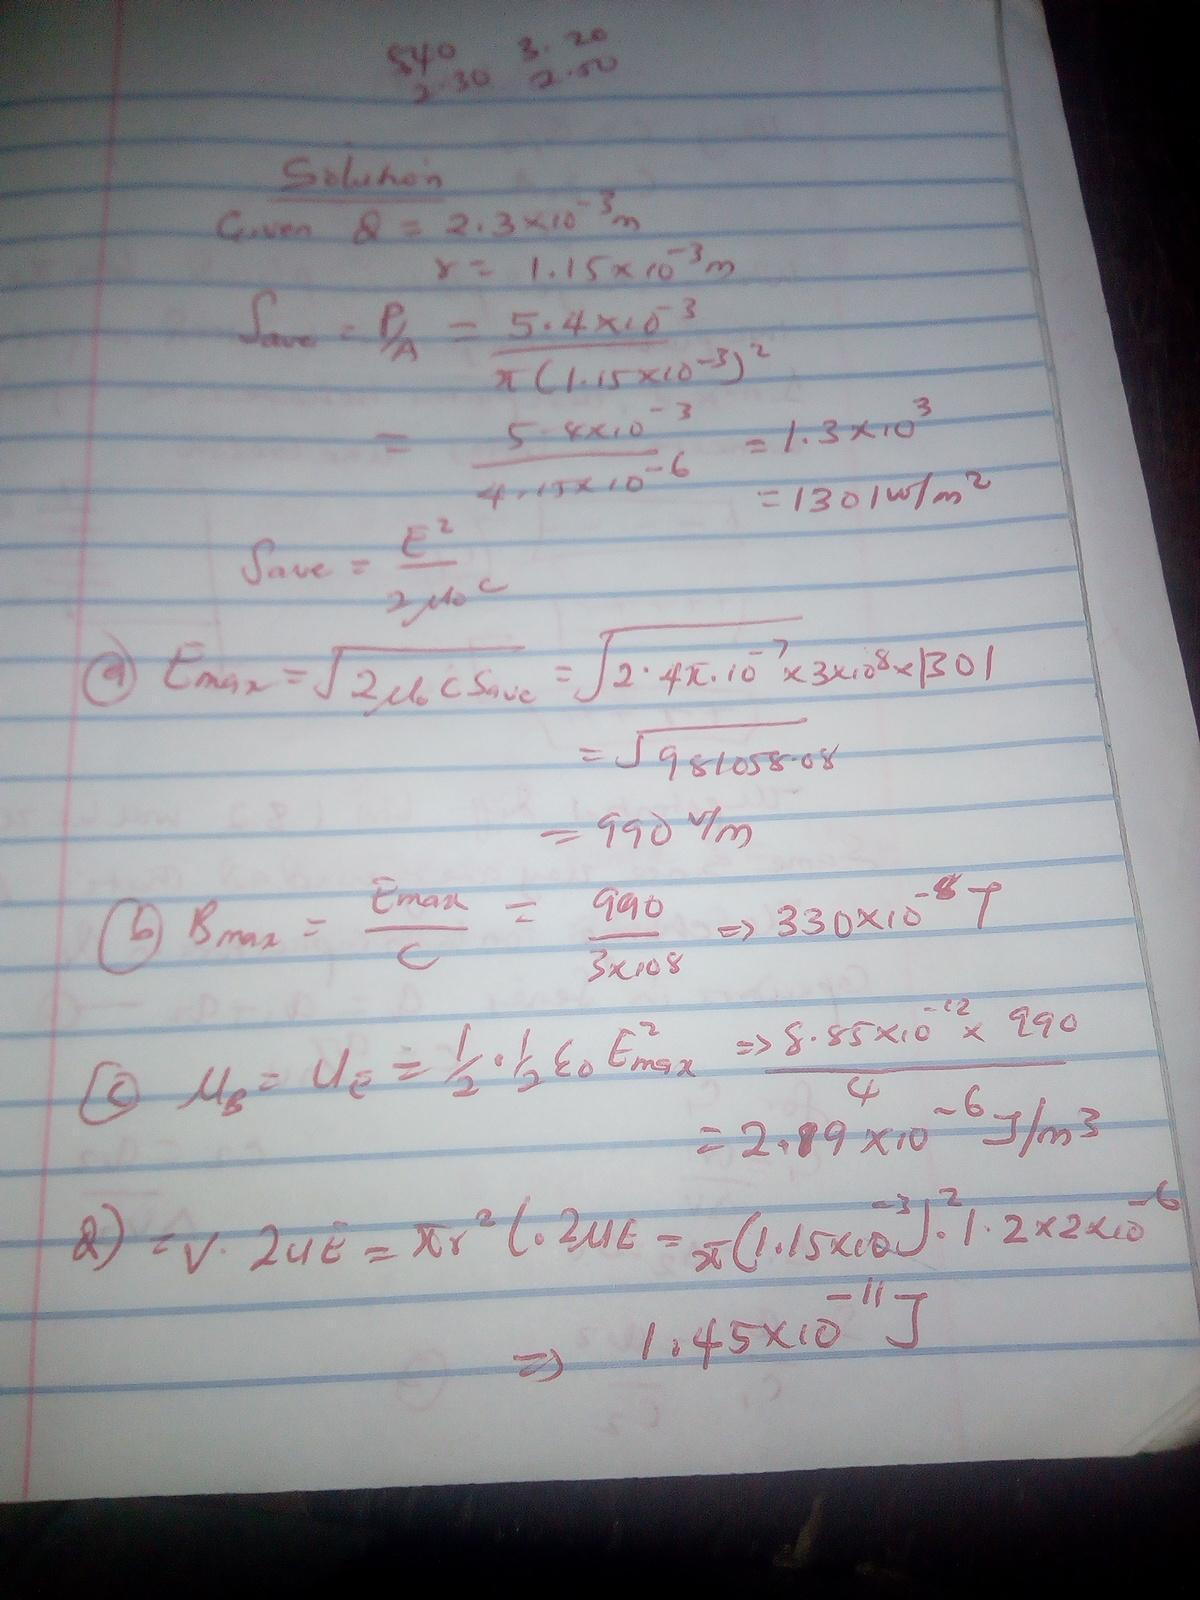 540 3.20
2.30 2.50
Solution
Given Q = 2.3x10⁻³m
r = 1.15x10⁻³m
Save = P/A = 5.4x10⁻³ / π(1.15x10⁻³)²
= 5.4x10⁻³ / 4.15x10⁻⁶ = 1.3x10³
= 1301w/m²
Save = E² / 2μ₀c
(a) Emax = √2μ₀cSave = √2.4π.10⁻⁷x3x10⁸x1301
= √981058.08
= 990 v/m
(b) Bmax = Emax / C = 990 / 3x108 => 330x10⁻⁸T
(c) μB = UE = 1/2 . 1/2 ε₀E²max => 8.85x10⁻¹²x 990 / 4
= 2.19x10⁻⁶ J/m3
2) = V. 2UE = πr²(.2ME = π(1.15x10⁻³).²1.2x2x10⁻⁶
=> 1.45x10⁻¹¹J